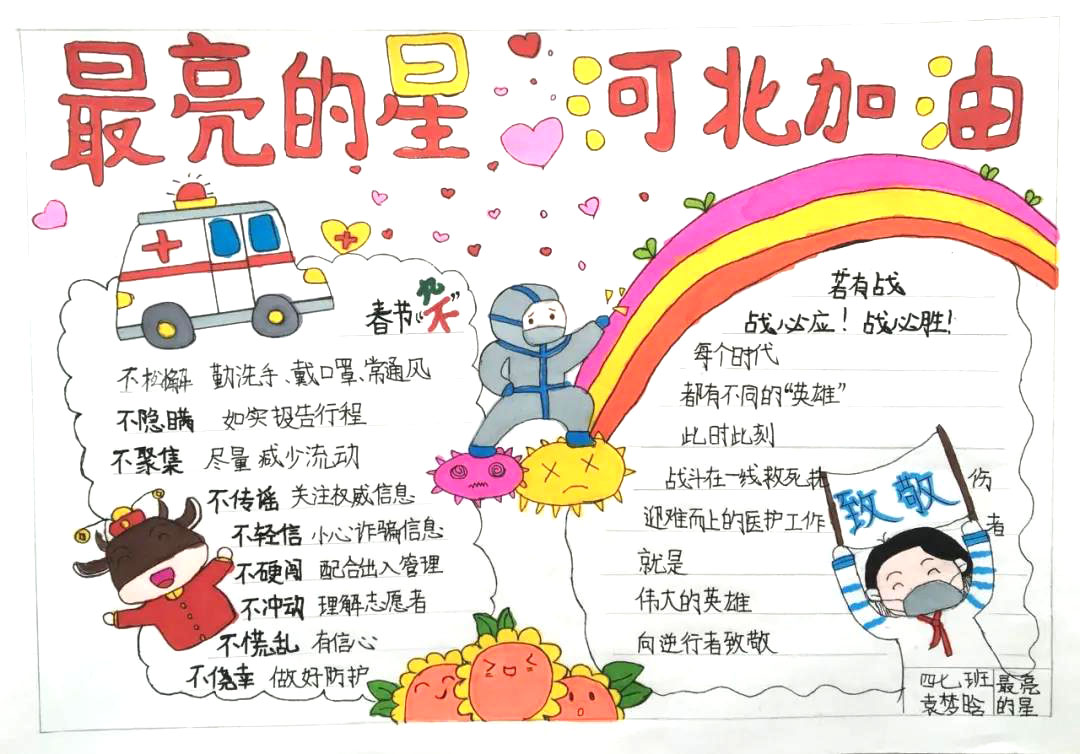 最亮的星 河北加油
春节"九不"
不松懈 勤洗手、戴口罩、常通风
不隐瞒 如实报告行程
不聚集 尽量减少流动
不传谣 关注权威信息
不轻信 小心诈骗信息
不硬闯 配合出入管理
不冲动 理解志愿者
不慌乱 有信心
不侥幸 做好防护
若有战
战必应!战必胜!
每个时代
都有不同的"英雄"
此时此刻
战斗在一线救死扶伤
迎难而上的医护工作者
就是
伟大的英雄
向逆行者致敬
致敬
四七班
袁梦晗
最亮
的星